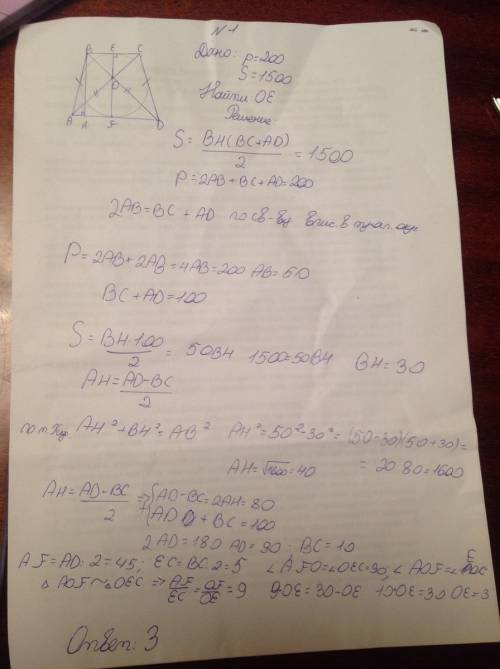 N 1
B E C
O
A H F D
Дано: p=200
S=1500
Найти: OE
Решение
S = BH(BC+AD)/2 = 1500
P=2AB+BC+AD=200
2AB=BC+AD по св-ву впис. в трап. окр.
P=2AB+2AB=4AB=200 AB=50
BC+AD=100
S=BH·100/2 = 50BH 1500=50BH BH=30
AH=AD-BC/2
по т. Пиф AH²+BH²=AB² AH²=50²-30²=(50-30)(50+30)=
AH=√1600=40 =20·80=1600
AH=AD-BC/2 ⇒ {AD-BC=2AH=80
+ {AD+BC=100
2AD=180 AD=90 BC=10
AF=AD:2=45; EC=BC:2=5 ∠AFO=∠OEC=90, ∠AOF=∠EOC
△AOF~△OEC ⇒ AF/EC=OF/OE=9 9OE=30-OE 10OE=30 OE=3
Ответ: 3